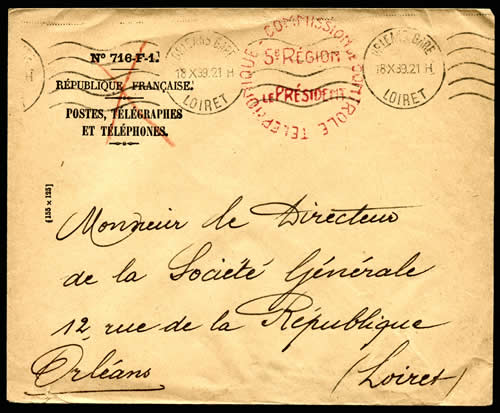 Nº 716-F-1.
RÉPUBLIQUE FRANÇAISE.
POSTES, TÉLÉGRAPHES
ET TÉLÉPHONES.
ORLEANS GARE
18 X 39.21 H
LOIRET
COMMISSION DE CONTRÔLE TÉLÉPHONIQUE
5E RÉGION
LE PRÉSIDENT
ORLEANS GARE
18 X 39.21 H
LOIRET
[155 × 125]
Monsieur le Directeur
de la Société Générale
12, rue de la République
Orléans (Loiret)